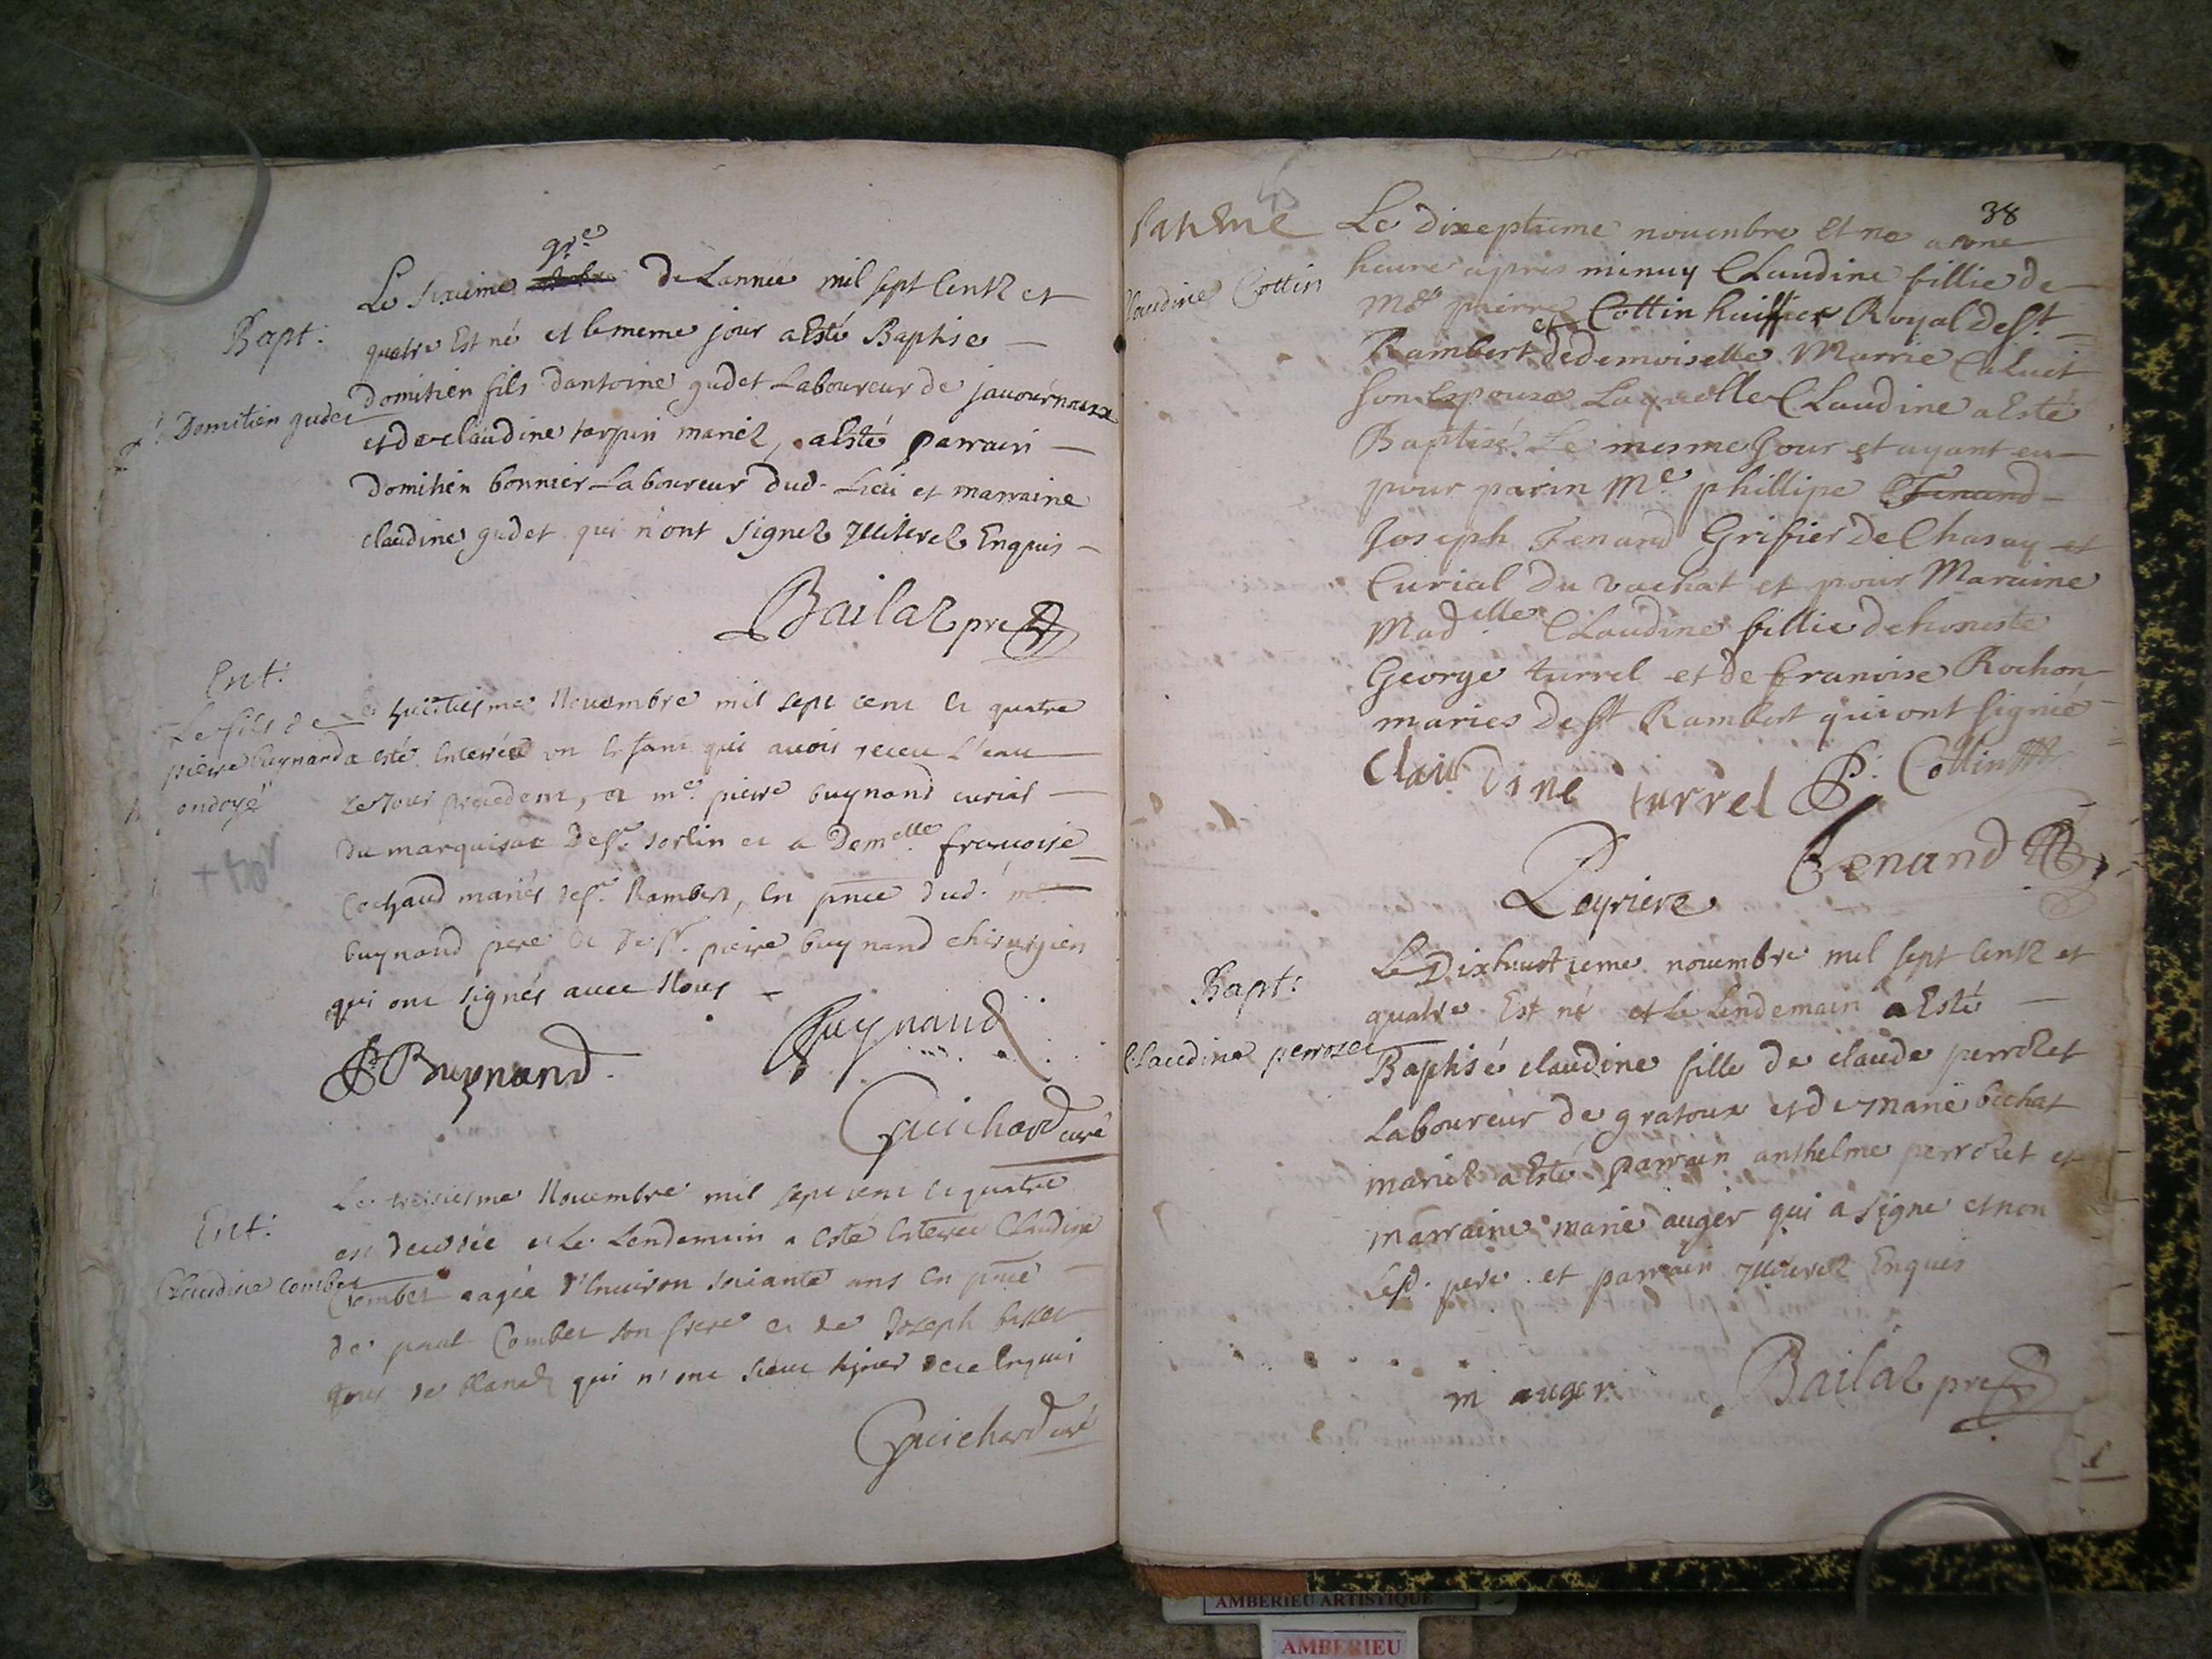 9re
Le sixieme de Lannée mil sept Centz et
Bapt:
quatre Est né et le meme jour a Esté Baptise
Domitien gudet
domitien fils dantoine gudet Laboureur de javournoux
et de claudine tarpin mariez, a Esté parrain
domitien bonnier Laboureur dud. Lieu et marraine
claudine gudet qui n'ont signez Enquis
Bailat pre
Ent:
Le fils de
pierre buynand
ondoyé
huictiesme Novembre mil sept cent et quatre
a esté Enterré un Enfant qui avoit receu l'eau
le jour precedent, a me. pierre buynand curial
du marquisat de St. Sorlin et a Demelle. francoise
Cochaud mariés de St. Rambert, En pnce dud.
buynand pere et de Sr. pierre buynand chirurgien
qui ont signés avec Nous
P. Buynand
Buynand
Guichard curé
Ent:
Claudine combet
Le treiziesme Novembre mil sept cent et quatre
est decedée et Le Lendemain a esté Enterrée Claudine
Combet eagée d'Environ soixante ans En pnce
de paul Combet son frere et de Joseph
de blanaz qui n'ont sceu signer Enquis
Guichard curé
38
Claudine Cottin
Le dixeptieme novenbre et ne a une
heure apres minuy Claudine fillie de
Me pierre Cottin huissier Royal de St
Rambert et dedemoiselle Marrie Caluet
son Espouse Laquelle Claudine a Esté
Baptisé Le mesme Jour et ayant eu
pour parin Me phillipe Tenand
Joseph Tenand Grifier De Chasay et
Curial du vachat et pour Maraine
Madelle Claudine fillie dehoneste
George turrel et de francoise Rochon
maries De St Rambert qui ont signié
Claudine turrel P. Cottin
Tenand
Leyriere
Bapt:
Claudine perrozet
Le Dixhuitieme novembre mil sept Centz et
quatre Est né et le Lendemain a Esté
Baptisé claudine fille de claude perrozet
Laboureur de gratoux et de marie bichat
mariez a Esté parrain anthelme perrozet et
marraine marie auger qui a signe et non
Lesd. pere et parrain Enquis
m auger
Bailat pre
AMBERIEU ARTISTIQUE
AMBERIEU